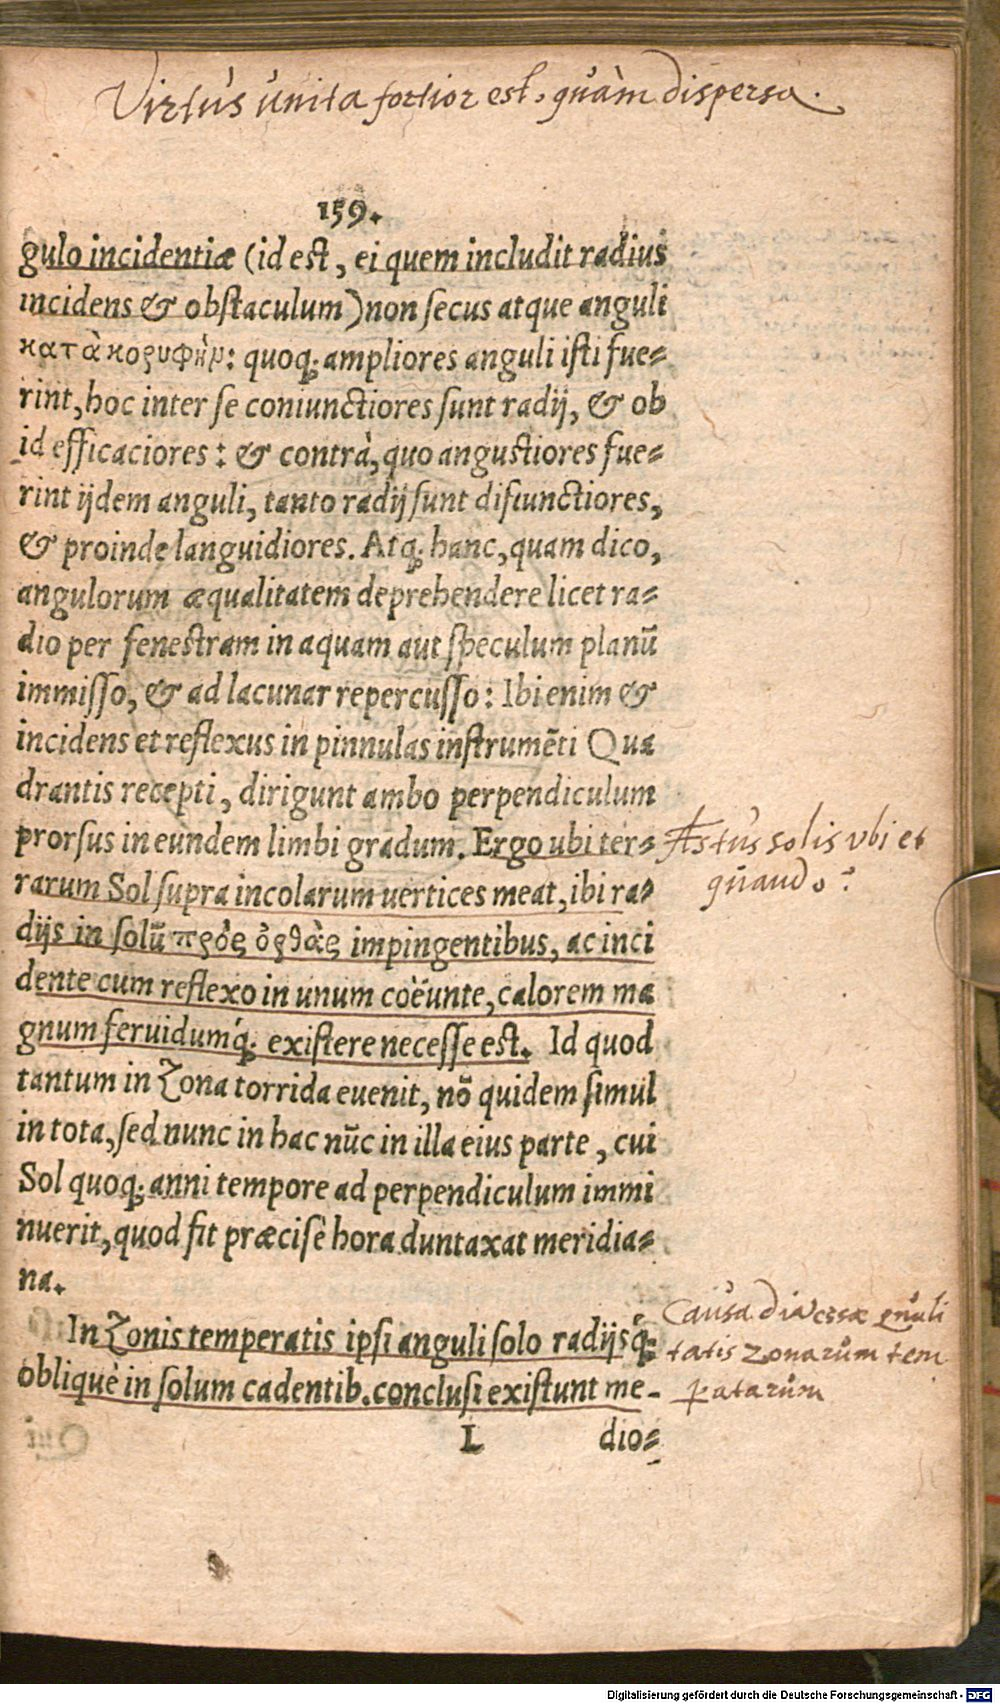 Virtùs unita fortior est, quàm dispersa.
159.
gulo incidentiæ (id est, ei quem includit radius
incidens & obstaculum) non secus atque anguli
κατὰ κορυφὴν: quoq; ampliores anguli isti fue-
rint, hoc inter se coniunctiores sunt radij, & ob
id efficaciores: & contrà, quo angustiores fue-
rint ijdem anguli, tanto radij sunt disiunctiores,
& proinde languidiores. Atq; hanc, quam dico,
angulorum æqualitatem deprehendere licet ra-
dio per fenestram in aquam aut speculum planū
immisso, & ad lacunar repercusso: Ibi enim &
incidens et reflexus in pinnulas instrumēti Qua
drantis recepti, dirigunt ambo perpendiculum
prorsus in eundem limbi gradum. Ergo ubi ter-
rarum Sol supra incolarum uertices meat, ibi ra-
dijs in solū πρὸς ὀρθὰς impingentibus, ac inci
dente cum reflexo in unum coëunte, calorem ma
gnum feruidumq́; existere necesse est. Id quod
tantum in Zona torrida euenit, nō quidem simul
in tota, sed nunc in hac nūc in illa eius parte, cui
Sol quoq; anni tempore ad perpendiculum immi
nuerit, quod fit præcisè hora duntaxat meridia-
na.
In Zonis temperatis ipsi anguli solo radijsq́;
obliquè in solum cadentib. conclusi existunt me-
L dio-
Æstus solis ubi et
quando?
Causa diversæ quali
tatis zonarum tem
patarum
Digitalisierung gefördert durch die Deutsche Forschungsgemeinschaft - DFG